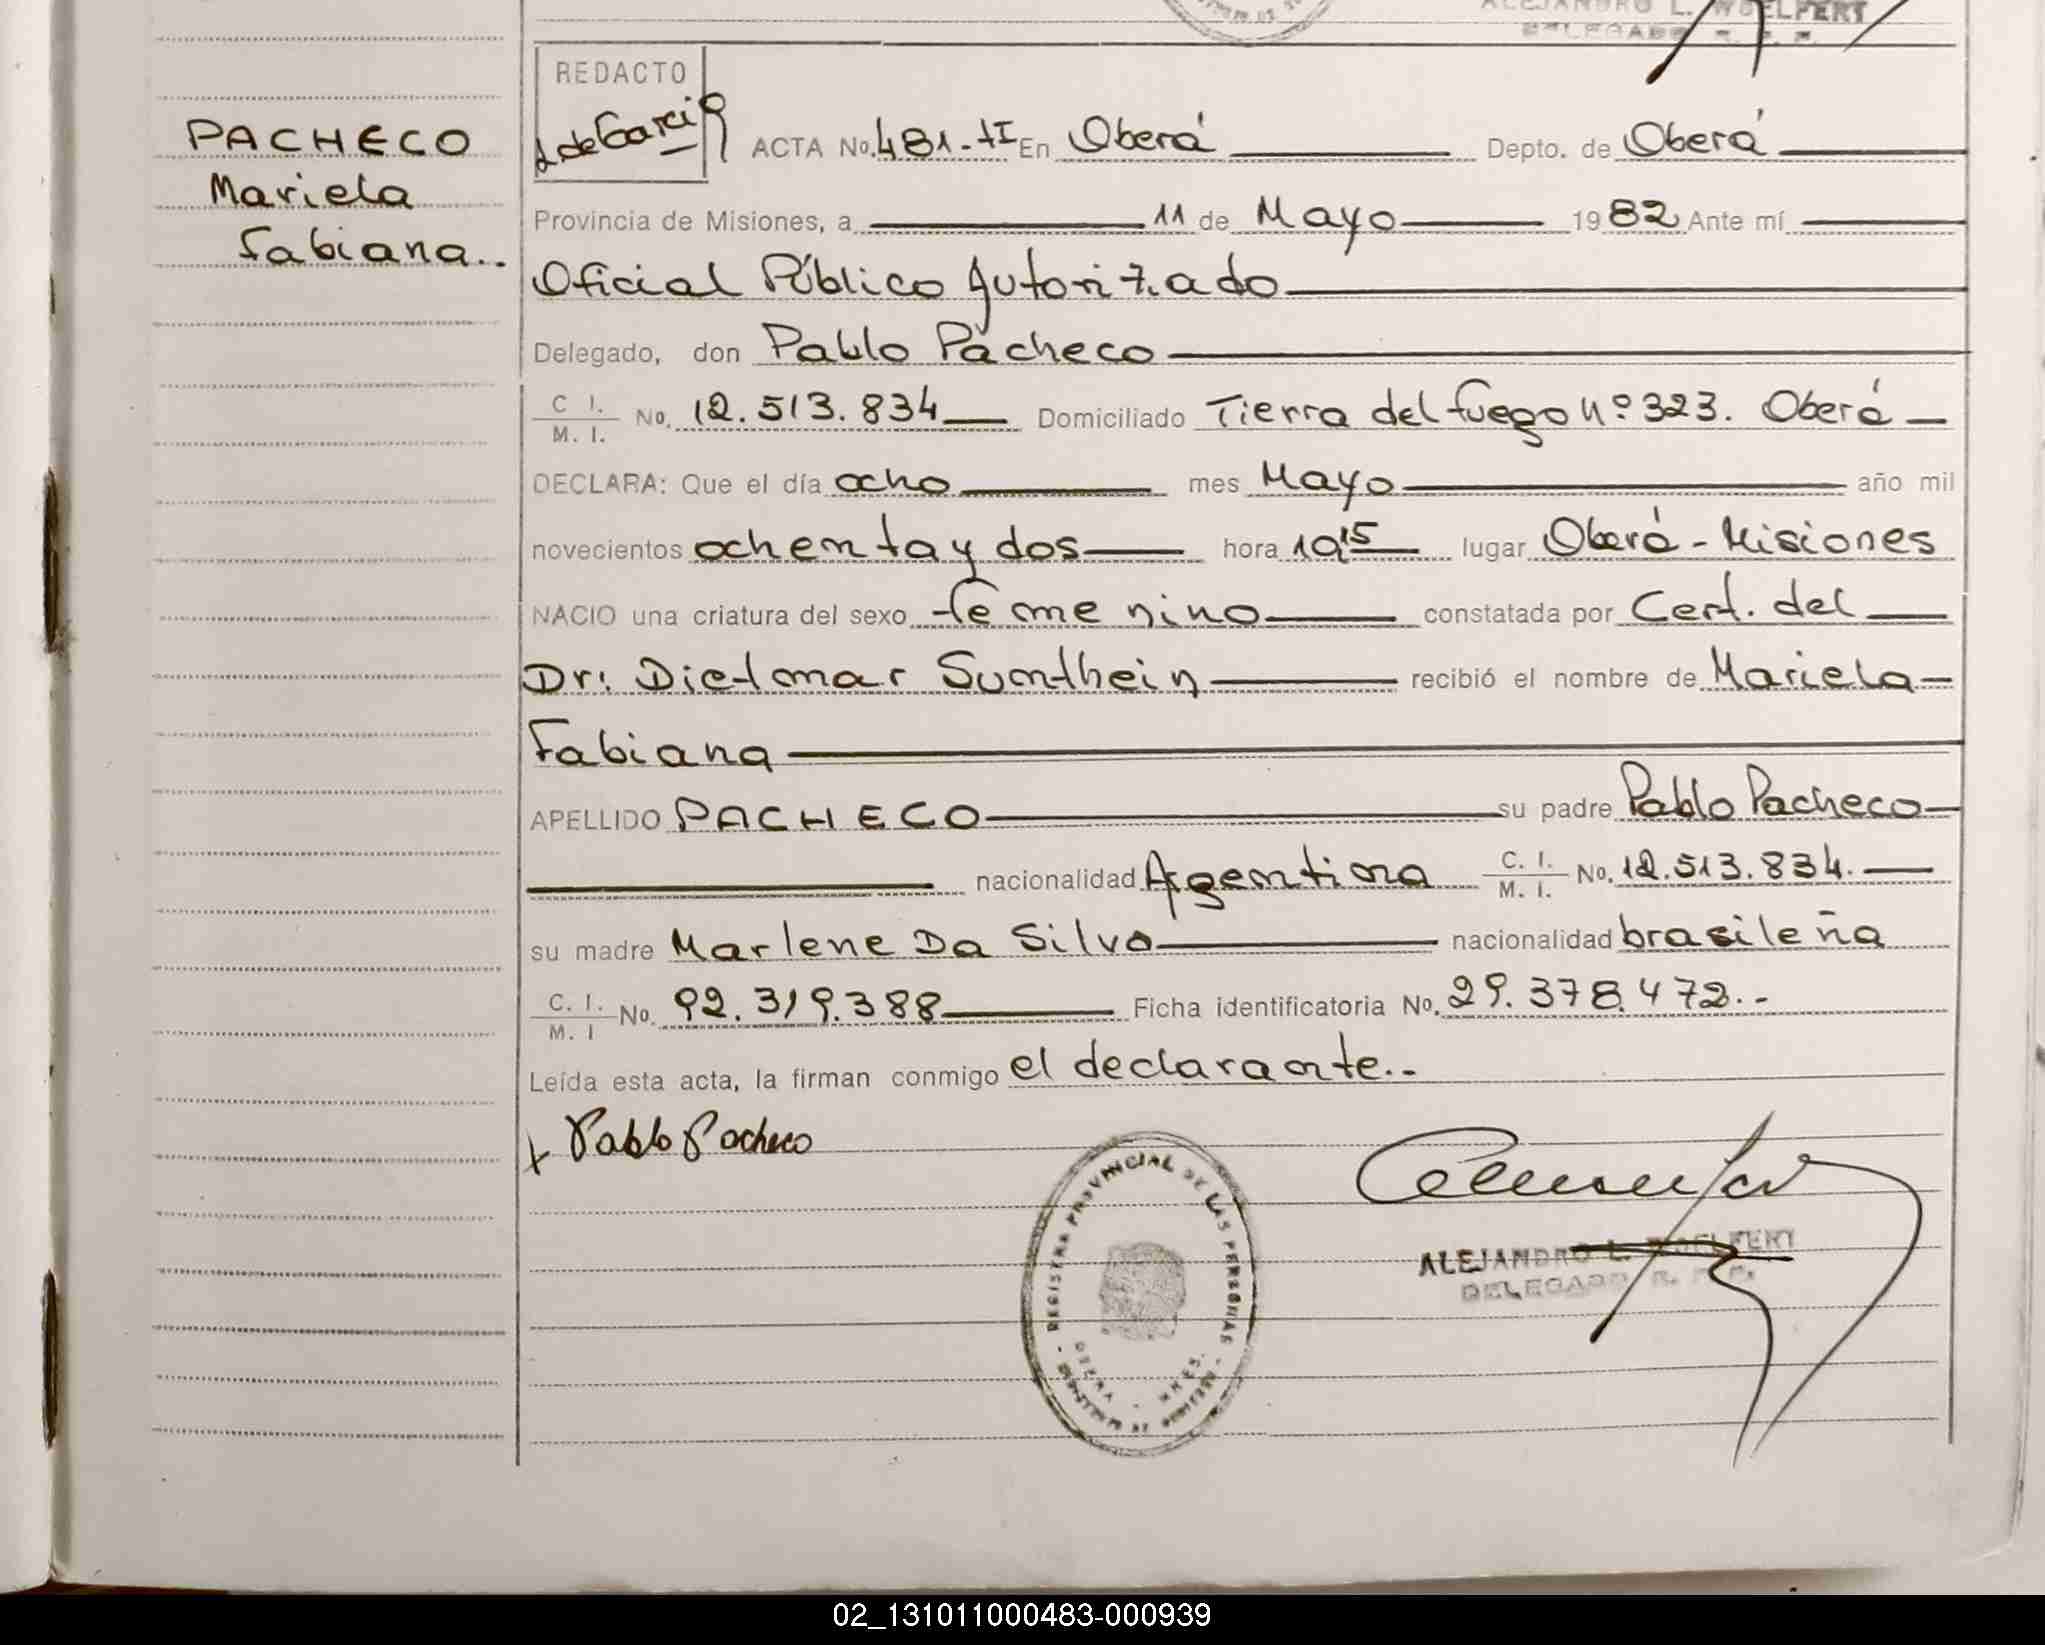 ALEJANDRO L. WOELFERT
DELEGADO R. P. P.
REDACTO
PACHECO
Mariela
Fabiana..
L de Garcia
ACTA No. 481-tI En Oberá Depto. de Oberá
Provincia de Misiones, a 11 de Mayo 1982 Ante mí
Oficial Público Autorizado
Delegado, don Pablo Pacheco
C I. / M. I. No. 12.513.834 Domiciliado Tierra del fuego nº 323. Oberá
DECLARA: Que el día ocho mes Mayo año mil
novecientos ochenta y dos hora 19,15 lugar Oberá - Misiones
NACIO una criatura del sexo femenino constatada por Cert. del
Dr: Dietmar Sumthein recibió el nombre de Mariela
Fabiana
APELLIDO PACHECO su padre Pablo Pacheco
nacionalidad Agentina C. I. / M. I. No. 12.513.834.
su madre Marlene Da Silva nacionalidad brasileña
C. I. / M. I No. 92.319.388 Ficha identificatoria No. 29.378.472.-
Leída esta acta, la firman conmigo el declarante..
x Pablo Pacheco
REGISTRO PROVINCIAL DE LAS PERSONAS
OBERA - MNES.
ALEJANDRO L. WOELFERT
DELEGADO R. P. P.
02_131011000483-000939